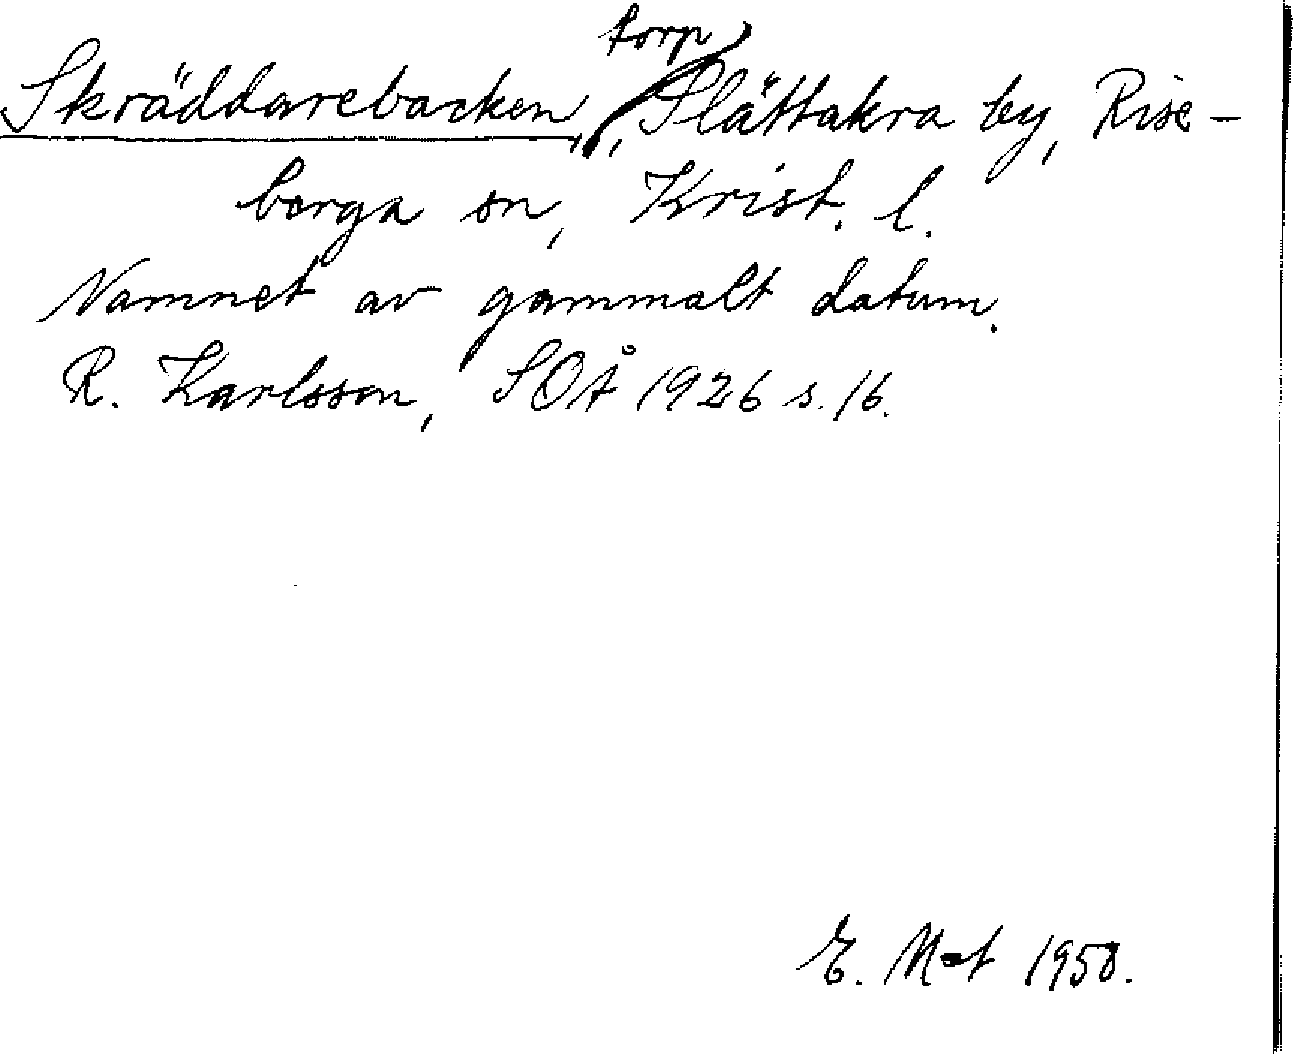 Skräddarebacken, torp, Slättakra by, Rise-
berga sn, Krist. l.
Namnet av gammalt datum.
R. Karlsson, SOÅ 1926 s. 16.
E. 1950.